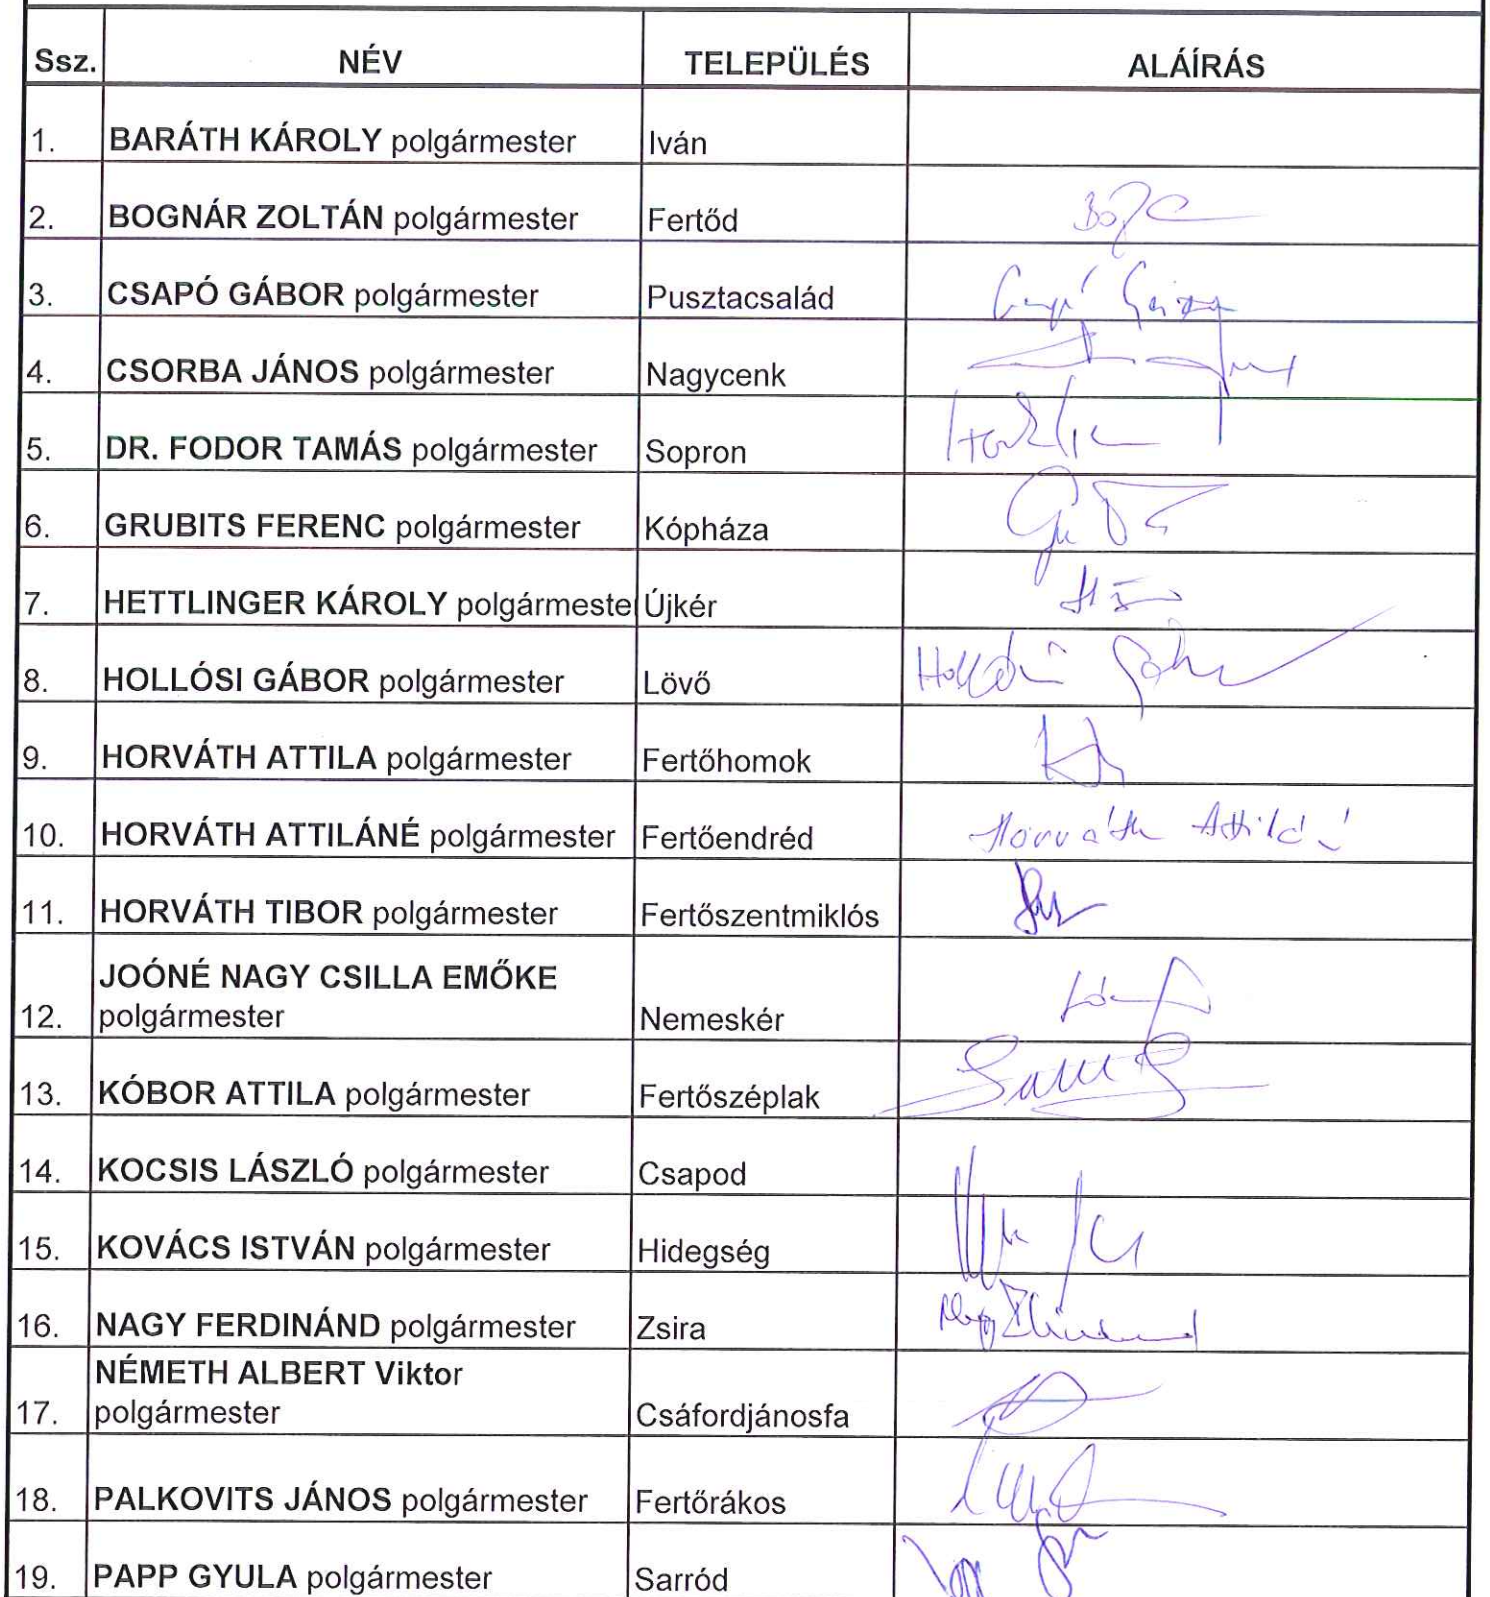 Ssz. NÉV TELEPÜLÉS ALÁÍRÁS
1. BARÁTH KÁROLY polgármester Iván
2. BOGNÁR ZOLTÁN polgármester Fertőd
3. CSAPÓ GÁBOR polgármester Pusztacsalád
4. CSORBA JÁNOS polgármester Nagycenk
5. DR. FODOR TAMÁS polgármester Sopron
6. GRUBITS FERENC polgármester Kópháza
7. HETTLINGER KÁROLY polgármester Újkér
8. HOLLÓSI GÁBOR polgármester Lövő
9. HORVÁTH ATTILA polgármester Fertőhomok
10. HORVÁTH ATTILÁNÉ polgármester Fertőendréd Horváth Attiláné
11. HORVÁTH TIBOR polgármester Fertőszentmiklós
JOÓNÉ NAGY CSILLA EMŐKE
12. polgármester Nemeskér
13. KÓBOR ATTILA polgármester Fertőszéplak
14. KOCSIS LÁSZLÓ polgármester Csapod
15. KOVÁCS ISTVÁN polgármester Hidegség
16. NAGY FERDINÁND polgármester Zsira
NÉMETH ALBERT Viktor
17. polgármester Csáfordjánosfa
18. PALKOVITS JÁNOS polgármester Fertőrákos
19. PAPP GYULA polgármester Sarród